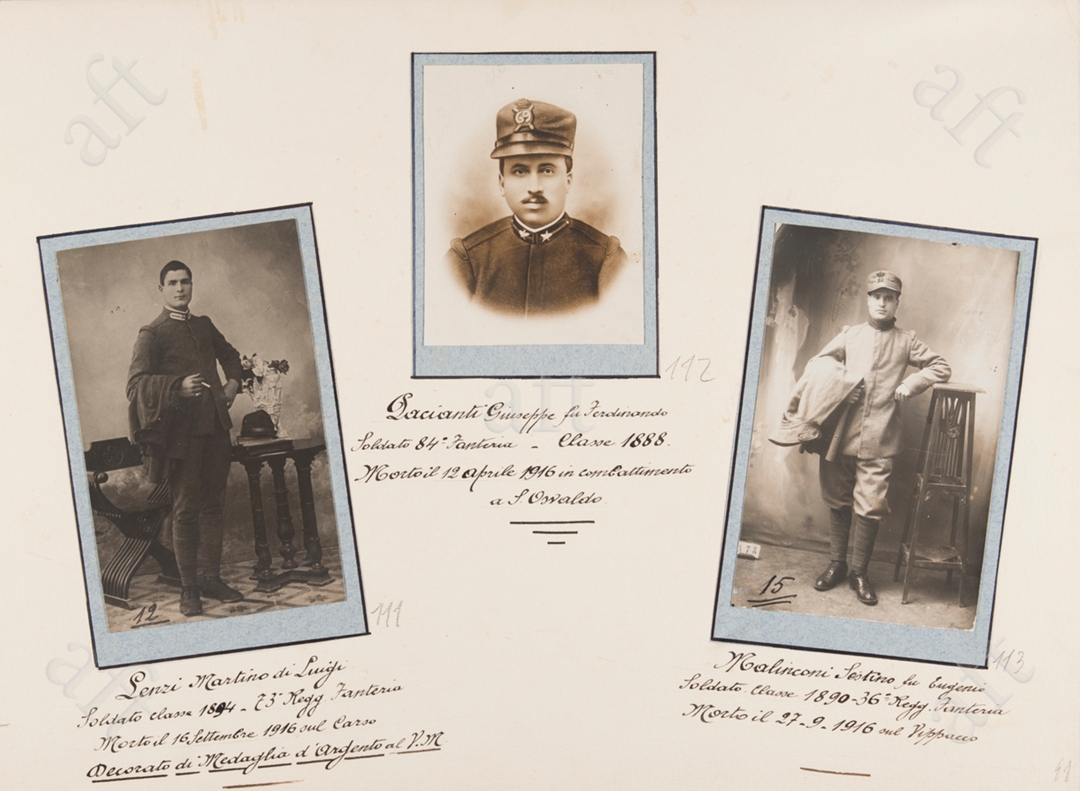 aft
aft
69
112
Pacianti Giuseppe fu Ferdinando
Soldato 84º Fanteria - Classe 1888.
Morto il 12 Aprile 1916 in combattimento
a S. Osvaldo
aft
12
111
Lenzi Martino di Luigi
Soldato classe 1894 - 73º Regg. Fanteria
Morto il 16 Settembre 1916 sul Carso
Decorato di Medaglia d'Argento al V.M
aft
15
113
Malinconi Sestino fu Eugenio
Soldato classe 1890 - 36º Regg. Fanteria
Morto il 27-9-1916 sul Vippacco